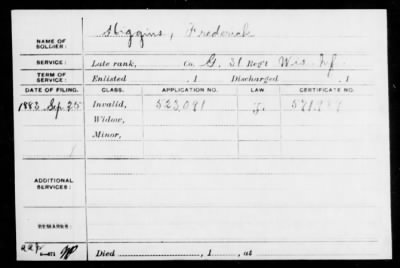 NAME OF SOLDIER: Higgins, Frederick
SERVICE: Late rank, Co. G. 31 Reg't Wis. Inf.
TERM OF SERVICE: Enlisted , 1 Discharged , 1
DATE OF FILING. CLASS. APPLICATION NO. LAW CERTIFICATE NO.
1883 Sep. 25 Invalid, 523,091
Widow,
Minor,
ADDITIONAL SERVICES:
REMARKS:
Died , 1 , at